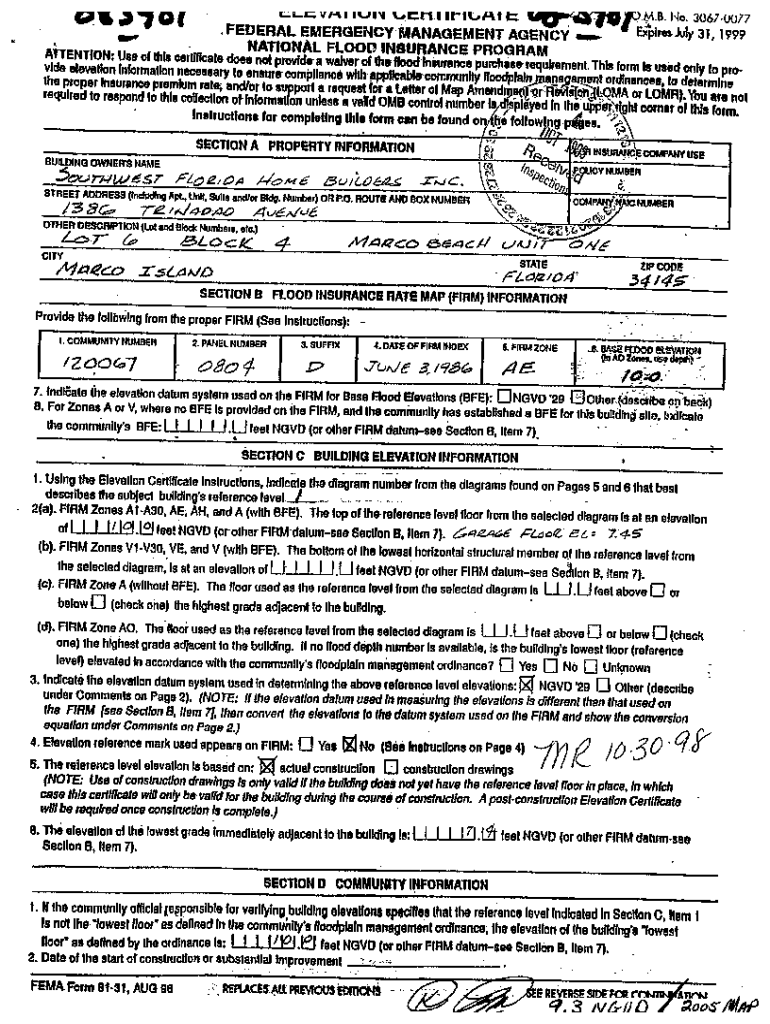 ELEVATION CERTIFICATE
O.M.B. No. 3067-0077
FEDERAL EMERGENCY MANAGEMENT AGENCY
Expires July 31, 1999
NATIONAL FLOOD INSURANCE PROGRAM
ATTENTION: Use of this certificate does not provide a waiver of the flood insurance purchase requirement. This form is used only to pro-
vide elevation information necessary to ensure compliance with applicable community floodplain management ordinances, to determine
the proper insurance premium rate, and/or to support a request for a Letter of Map Amendment or Revision (LOMA or LOMR). You are not
required to respond to this collection of information unless a valid OMB control number is displayed in the upper right corner of this form.
Instructions for completing this form can be found on the following pages.
SECTION A PROPERTY INFORMATION
INSURANCE COMPANY USE
BUILDING OWNER'S NAME
SOUTHWEST FLORIDA HOME BUILDERS INC.
POLICY NUMBER
Received
Inspections
STREET ADDRESS (Including Apt., Unit, Suite and/or Bldg. Number) OR P.O. ROUTE AND BOX NUMBER
COMPANY NAIC NUMBER
1386 TRINADAD AVENUE
OTHER DESCRIPTION (Lot and Block Numbers, etc.)
LOT 6 BLOCK 4 MARCO BEACH UNIT ONE
CITY STATE ZIP CODE
MARCO ISLAND FLORIDA 34145
SECTION B FLOOD INSURANCE RATE MAP (FIRM) INFORMATION
Provide the following from the proper FIRM (See Instructions):
1. COMMUNITY NUMBER 2. PANEL NUMBER 3. SUFFIX 4. DATE OF FIRM INDEX 5. FIRM ZONE 6. BASE FLOOD ELEVATION
(in AO Zones, use depth)
120067 0804 D JUNE 3, 1986 AE 10.0
7. Indicate the elevation datum system used on the FIRM for Base Flood Elevations (BFE): NGVD '29 Other (describe on back)
8. For Zones A or V, where no BFE is provided on the FIRM, and the community has established a BFE for this building site, indicate
the community's BFE: feet NGVD (or other FIRM datum–see Section B, Item 7).
SECTION C BUILDING ELEVATION INFORMATION
1. Using the Elevation Certificate Instructions, indicate the diagram number from the diagrams found on Pages 5 and 6 that best
describes the subject building's reference level 1
2(a). FIRM Zones A1-A30, AE, AH, and A (with BFE). The top of the reference level floor from the selected diagram is at an elevation
of feet NGVD (or other FIRM datum–see Section B, Item 7). GARAGE FLOOR EL: 7.45
(b). FIRM Zones V1-V30, VE, and V (with BFE). The bottom of the lowest horizontal structural member of the reference level from
the selected diagram, is at an elevation of feet NGVD (or other FIRM datum–see Section B, Item 7).
(c). FIRM Zone A (without BFE). The floor used as the reference level from the selected diagram is feet above or
below (check one) the highest grade adjacent to the building.
(d). FIRM Zone AO. The floor used as the reference level from the selected diagram is feet above or below (check
one) the highest grade adjacent to the building. If no flood depth number is available, is the building's lowest floor (reference
level) elevated in accordance with the community's floodplain management ordinance? Yes No Unknown
3. Indicate the elevation datum system used in determining the above reference level elevations: NGVD '29 Other (describe
under Comments on Page 2). (NOTE: If the elevation datum used in measuring the elevations is different than that used on
the FIRM [see Section B, Item 7], then convert the elevations to the datum system used on the FIRM and show the conversion
equation under Comments on Page 2.)
4. Elevation reference mark used appears on FIRM: Yes No (See Instructions on Page 4) MR 10-30-98
5. The reference level elevation is based on: actual construction construction drawings
(NOTE: Use of construction drawings is only valid if the building does not yet have the reference level floor in place, in which
case this certificate will only be valid for the building during the course of construction. A post-construction Elevation Certificate
will be required once construction is complete.)
6. The elevation of the lowest grade immediately adjacent to the building is: feet NGVD (or other FIRM datum-see
Section B, Item 7).
SECTION D COMMUNITY INFORMATION
1. If the community official responsible for verifying building elevations specifies that the reference level indicated in Section C, Item 1
is not the "lowest floor" as defined in the community's floodplain management ordinance, the elevation of the building's "lowest
floor" as defined by the ordinance is: feet NGVD (or other FIRM datum–see Section B, Item 7).
2. Date of the start of construction or substantial improvement
FEMA Form 81-31, AUG 96 REPLACES ALL PREVIOUS EDITIONS SEE REVERSE SIDE FOR CONTINUATION
9.3 NGVD / 2005 MAP